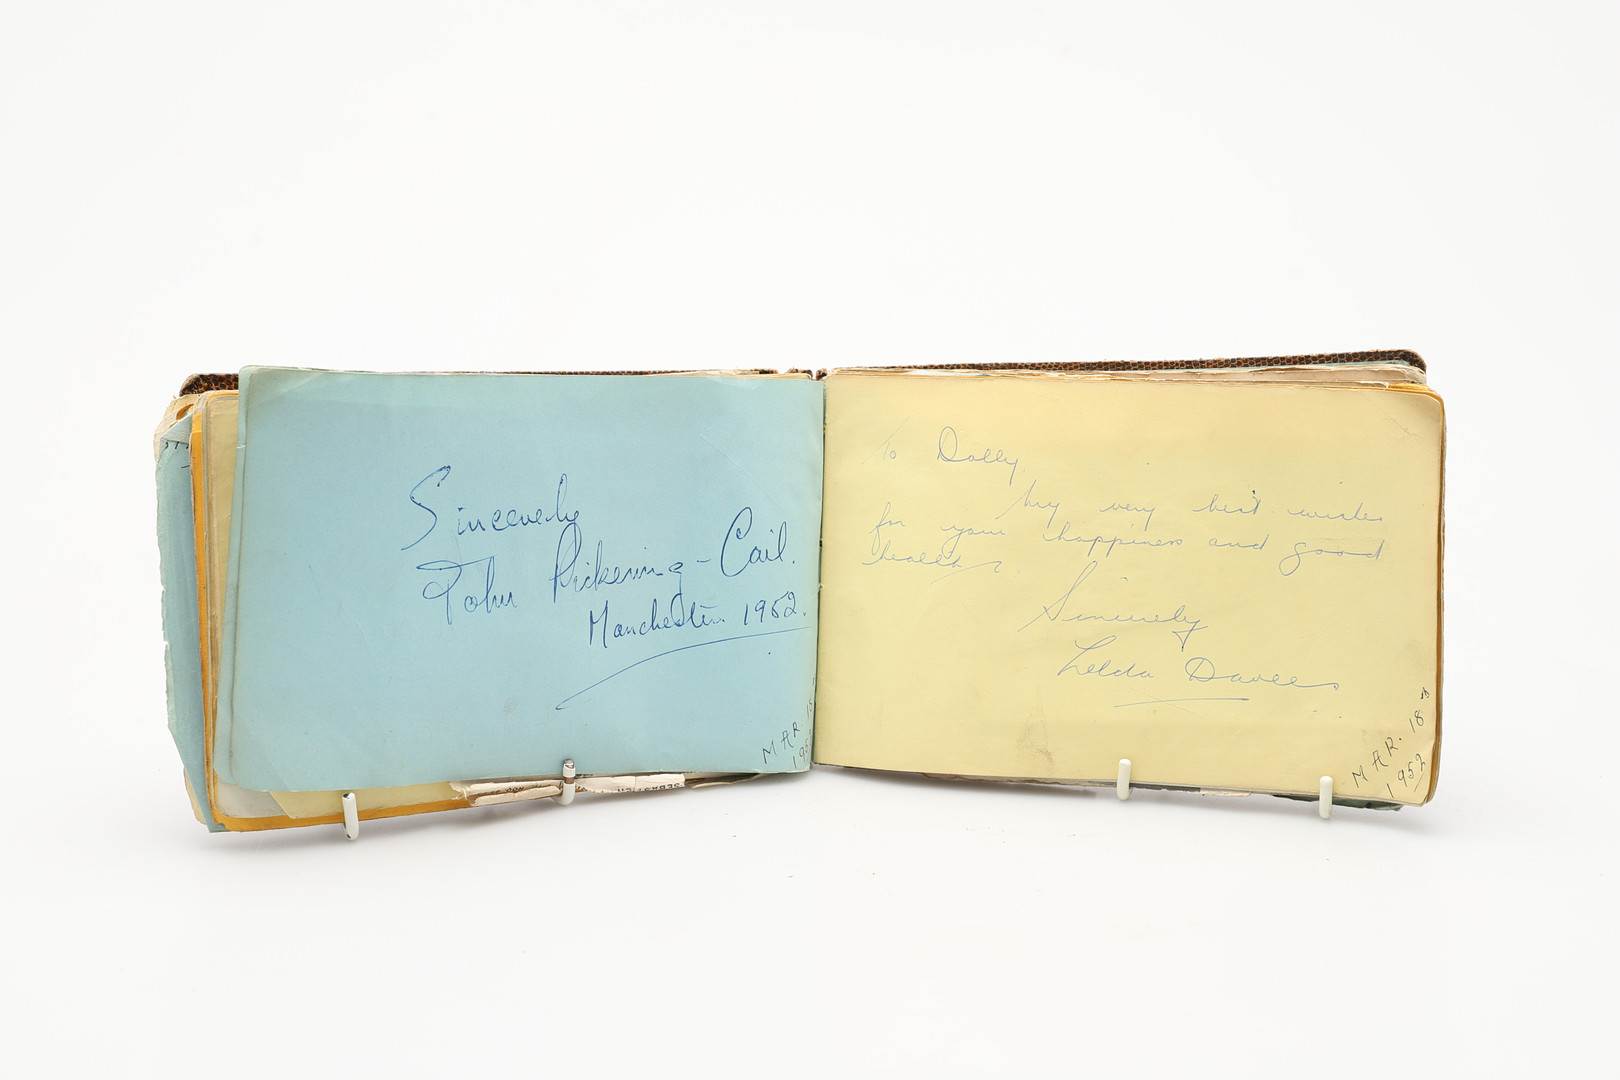 Sincerely
John Pickering-Cail.
Manchester. 1952.
MAR 18
195
To Dolly
My very best wishes
for your happiness and good
health
Sincerely
Zelda Davees
MAR. 18
1952